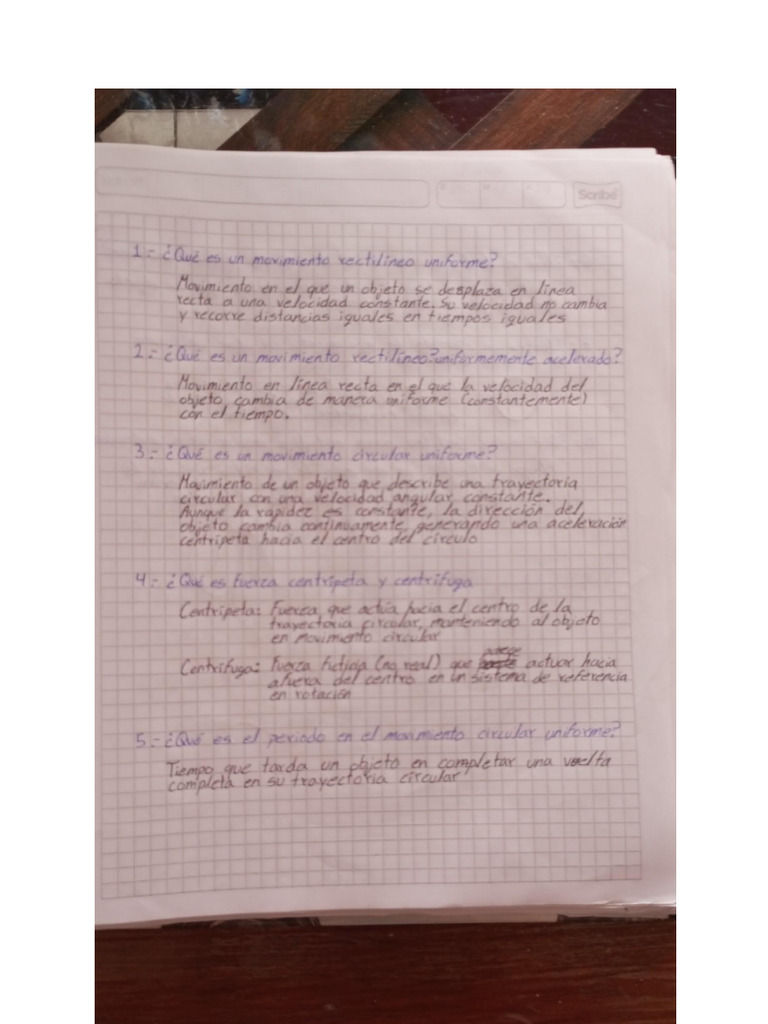 Scribe
1.- ¿Qué es un movimiento rectilíneo uniforme?
Movimiento en el que un objeto se desplaza en línea
recta a una velocidad constante. Su velocidad no cambia
y recorre distancias iguales en tiempos iguales
2.- ¿Qué es un movimiento rectilíneo?uniformemente acelerado?
Movimiento en línea recta en el que la velocidad del
objeto cambia de manera uniforme (constantemente)
con el tiempo.
3.- ¿Qué es un movimiento circular uniforme?
Movimiento de un objeto que describe una trayectoria
circular con una velocidad angular constante.
Aunque la rapidez es constante, la dirección del
objeto cambia continuamente, generando una aceleración
centrípeta hacia el centro del círculo
4.- ¿Qué es fuerza centrípeta y centrífuga
Centrípeta: Fuerza que actúa hacia el centro de la
trayectoria circular, manteniendo al objeto
en movimiento circular
Centrífuga: Fuerza ficticia (no real) que actuar hacia
afuera del centro en un sistema de referencia
en rotación
5.- ¿Qué es el periodo en el movimiento circular uniforme?
Tiempo que tarda un objeto en completar una vuelta
completa en su trayectoria circular